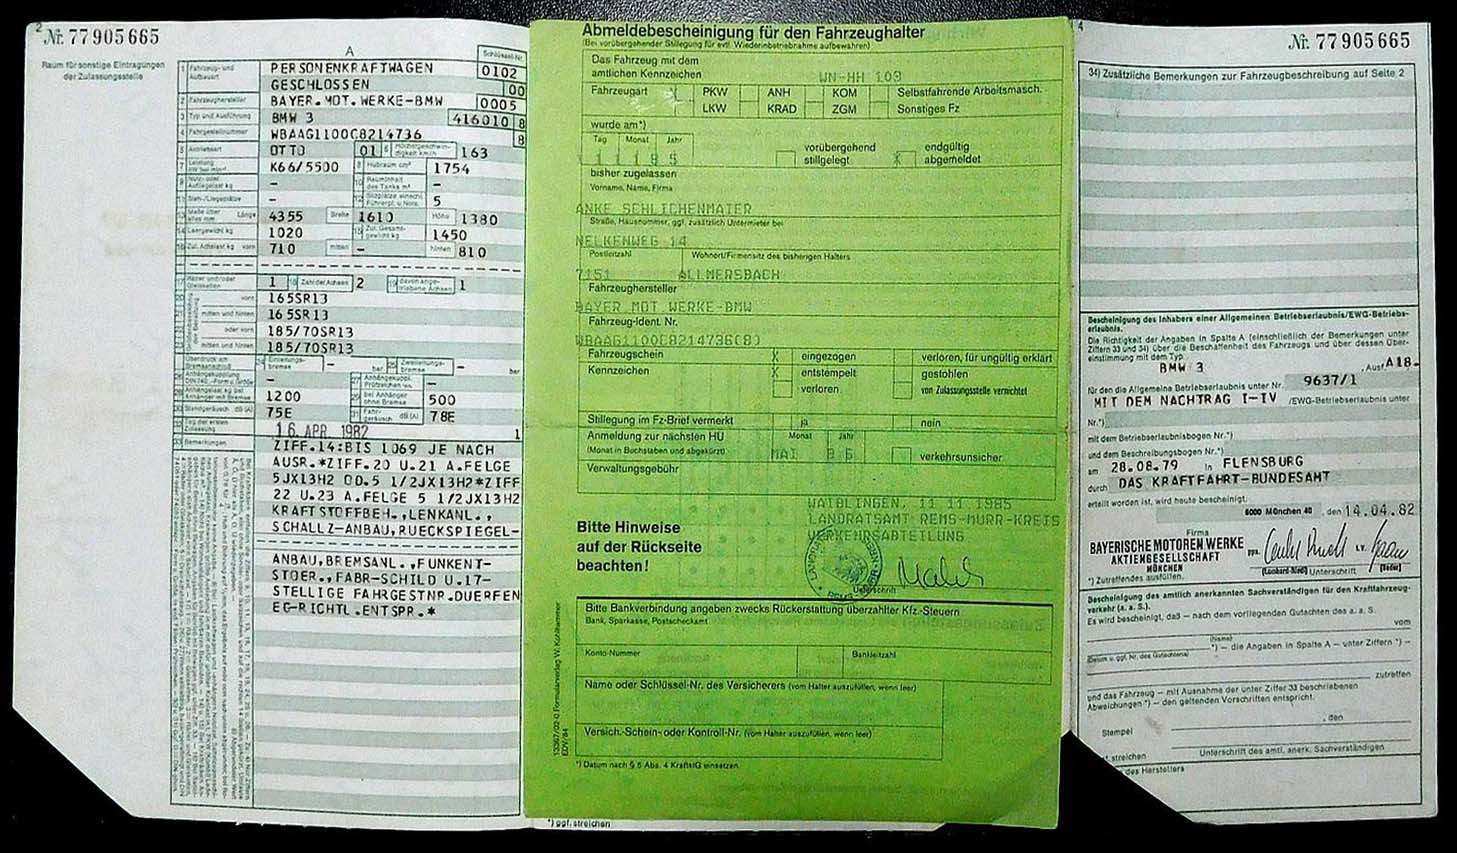 2
Nr. 77905665
Raum für sonstige Eintragungen
der Zulassungsstelle
A
Schlüssel-Nr.
1 Fahrzeug- und Aufbauart PERSONENKRAFTWAGEN 0102
GESCHLOSSEN 00
2 Fahrzeughersteller BAYER.MOT.WERKE-BMW 0005
3 Typ und Ausführung BMW 3 416010 8
4 Fahrgestellnummer WBAAG1100C8214736 8
5 Antriebsart OTTO 01 6 Höchstgeschwindigkeit km/h 163
7 Leistung K66/5500 8 Hubraum cm³ 1754
9 Nutz- oder Aufliegelast kg - 10 Rauminhalt des Tanks m³ -
11 Steh-/Liegeplätze - 12 Sitzplätze einschl. Führerpl. u. Nots. 5
13 Maße über alles mm Länge 4355 Breite 1610 Höhe 1380
14 Leergewicht kg 1020 15 Zul. Gesamtgewicht kg 1450
16 Zul. Achslast kg vorn 710 mitten - hinten 810
17 Räder und/oder Gleisketten 1 18 Zahl der Achsen 2 19 davon angetriebene Achsen 1
20 vorn 165SR13
21 mitten und hinten 165SR13
22 oder vorn 185/70SR13
23 mitten und hinten 185/70SR13
Überdruck am Bremsanschluß Einleitungsbremse - bar Zweileitungsbremse - bar
Anhängekupplung - 27 Anhängekuppl. Prüfzeichen -
Anhängelast kg bei Anhänger mit Bremse 1200 29 bei Anhänger ohne Bremse 500
30 Standgeräusch dB (A) 75E 31 Fahrgeräusch dB (A) 78E
32 Tag der ersten Zulassung 16. APR 1982 1
33 Bemerkungen ZIFF.14:BIS 1069 JE NACH
AUSR.*ZIFF.20 U.21 A.FELGE
5JX13H2 OD.5 1/2JX13H2*ZIFF
22 U.23 A.FELGE 5 1/2JX13H2
KRAFTSTOFFBEH.,LENKANL.,
SCHALLZ-ANBAU,RUECKSPIEGEL-
ANBAU,BREMSANL.,FUNKENT-
STOER.,FABR-SCHILD U.17-
STELLIGE FAHRGESTNR.DUERFEN
EG-RICHTL.ENTSPR.*
Abmeldebescheinigung für den Fahrzeughalter
(Bei vorübergehender Stillegung für evtl. Wiederinbetriebnahme aufbewahren)
Das Fahrzeug mit dem
amtlichen Kennzeichen WN-HH 103
Fahrzeugart X PKW ANH KOM Selbstfahrende Arbeitsmasch.
LKW KRAD ZGM Sonstiges Fz
wurde am*)
Tag Monat Jahr
11 11 85 vorübergehend stillgelegt X endgültig abgemeldet
bisher zugelassen
Vorname, Name, Firma
ANKE SCHLICHENMAIER
Straße, Hausnummer, ggf. zusätzlich Untermieter bei
NELKENWEG 14
Postleitzahl Wohnort/Firmensitz des bisherigen Halters
7151 ALLMERSBACH
Fahrzeughersteller
BAYER MOT WERKE-BMW
Fahrzeug-Ident. Nr.
WBAAG1100C8214736(8)
Fahrzeugschein X eingezogen verloren, für ungültig erklärt
Kennzeichen X entstempelt gestohlen
verloren von Zulassungsstelle vernichtet
Stillegung im Fz-Brief vermerkt ja nein
Anmeldung zur nächsten HU Monat Jahr
(Monat in Buchstaben und abgekürzt) MAI 86 verkehrsunsicher
Verwaltungsgebühr
WAIBLINGEN, 11 11 1985
LANDRATSAMT REMS-MURR-KREIS
VERKEHRSABTEILUNG
Bitte Hinweise
auf der Rückseite
beachten!
Unterschrift
Bitte Bankverbindung angeben zwecks Rückerstattung überzahlter Kfz.-Steuern
Bank, Sparkasse, Postscheckamt
Konto-Nummer Bankleitzahl
Name oder Schlüssel-Nr. des Versicherers (vom Halter auszufüllen, wenn leer)
Versich.-Schein- oder Kontroll-Nr. (vom Halter auszufüllen, wenn leer)
*) Datum nach § 5 Abs. 4 KraftStG einsetzen.
Formularverlag W. Kohlhammer
EDV/84
*) ggf. streichen
4
Nr. 77905665
34) Zusätzliche Bemerkungen zur Fahrzeugbeschreibung auf Seite 2
Bescheinigung des Inhabers einer Allgemeinen Betriebserlaubnis/EWG-Betriebs-
erlaubnis.
Die Richtigkeit der Angaben in Spalte A (einschließlich der Bemerkungen unter
Ziffern 33 und 34) über die Beschaffenheit des Fahrzeugs und über dessen Über-
einstimmung mit dem Typ
BMW 3 , Ausf. A18-
für den die Allgemeine Betriebserlaubnis unter Nr. 9637/1
MIT DEM NACHTRAG I-IV /EWG-Betriebserlaubnis unter
Nr.*)
mit dem Betriebserlaubnisbogen Nr.*)
und dem Beschreibungsbogen Nr.*)
am 28.08.79 in FLENSBURG
durch DAS KRAFTFAHRT-BUNDESAMT
erteilt worden ist, wird heute bescheinigt.
8000 München 40 , den 14.04.82
Firma
BAYERISCHE MOTOREN WERKE
AKTIENGESELLSCHAFT
MÜNCHEN
ppa. i.V.
Unterschrift
*) Zutreffendes ausfüllen.
Bescheinigung des amtlich anerkannten Sachverständigen für den Kraftfahrzeug-
verkehr (a. a. S.).
Es wird bescheinigt, daß – nach dem vorliegenden Gutachten des a. a. S.
vom
(Name)
*) – die Angaben in Spalte A – unter Ziffern *) –
(Datum u. ggf. Nr. des Gutachtens)
zutreffen
und das Fahrzeug – mit Ausnahme der unter Ziffer 33 beschriebenen
Abweichungen *) – den geltenden Vorschriften entspricht.
, den
Stempel
streichen Unterschrift des amtl. anerk. Sachverständigen
des Herstellers